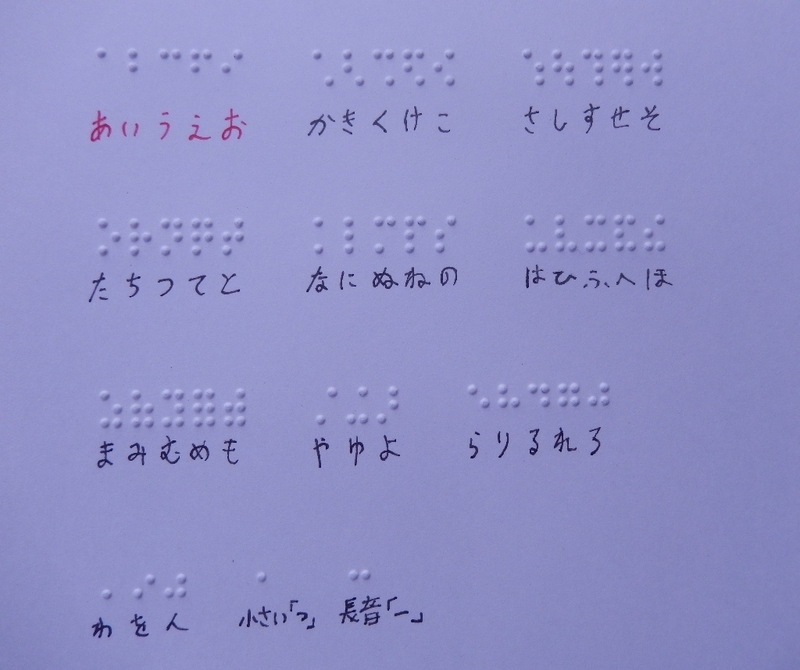 あいうえお かきくけこ さしすせそ
たちつてと なにぬねの はひふへほ
まみむめも やゆよ らりるれろ
わをん 小さい「っ」 長音「ー」